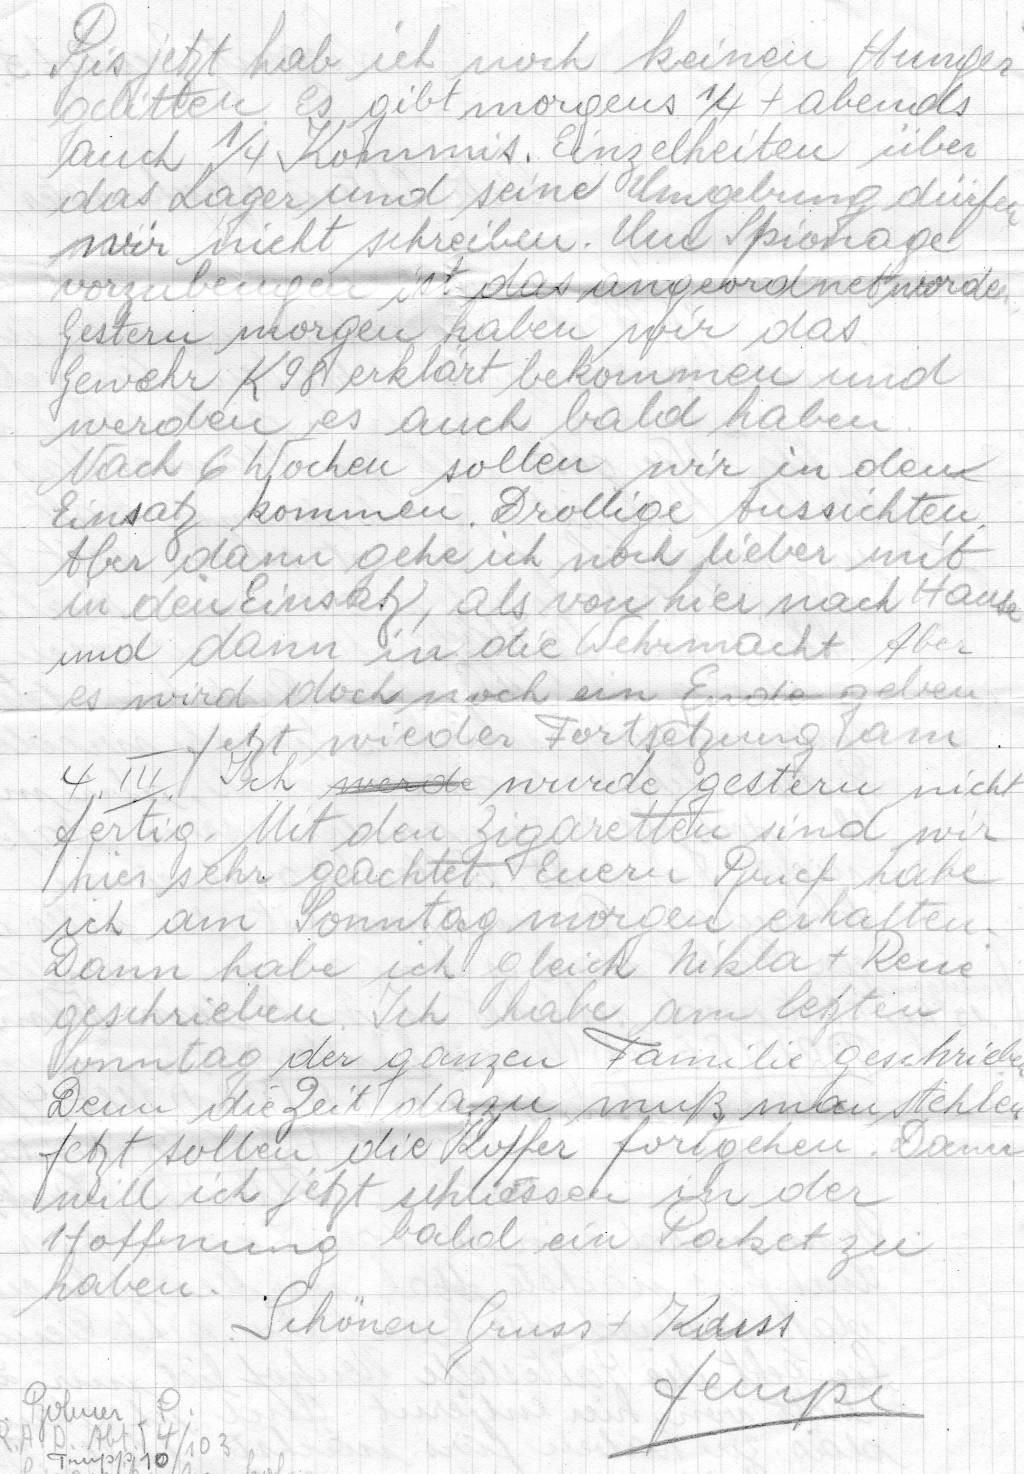 Bis jetzt hab ich noch keinen Hunger
gelitten. Es gibt morgens 1/4 + abends
auch 1/4 Kommis. Einzelheiten über
das Lager und seine Umgebung dürfen
wir nicht schreiben. Um Spionage
vorzubeugen ist das angeordnet worden.
Gestern morgen haben wir das
Gewehr K 98 erklärt bekommen und
werden es auch bald haben.
Nach 6 Wochen sollen wir in den
Einsatz kommen. Drollige Aussichten.
Aber dann gehe ich noch lieber mit
in den Einsatz, als von hier nach Hause
und dann in die Wehrmacht. Aber
es wird doch noch ein Ende geben.
Jetzt wieder Fortsetzung am
4. III. Ich werde wurde gestern nicht
fertig. Mit den Zigaretten sind wir
hier sehr geachtet. Euern Brief habe
ich am Sonntag morgen erhalten.
Dann habe ich gleich Nikla + René
geschrieben. Ich habe am letzten
Sonntag der ganzen Familie geschrieben
Denn die Zeit dazu muß man stehlen
Jetzt sollen die Koffer fortgehen. Dann
will ich jetzt schliessen in der
Hoffnung bald ein Paket zu
haben.
Schönen Gruss + Kuss
Jempi
P.
R.A.D. Abt. 4/103
Trupp 10